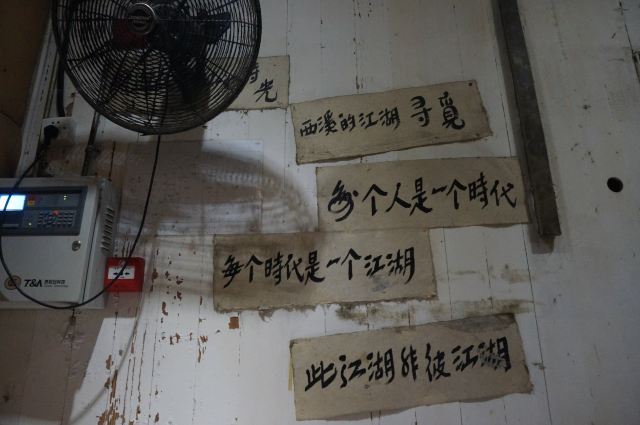 時光
西溪的江湖 寻覓
每个人是一个時代
每个時代是一个江湖
此江湖非彼江湖
T&A